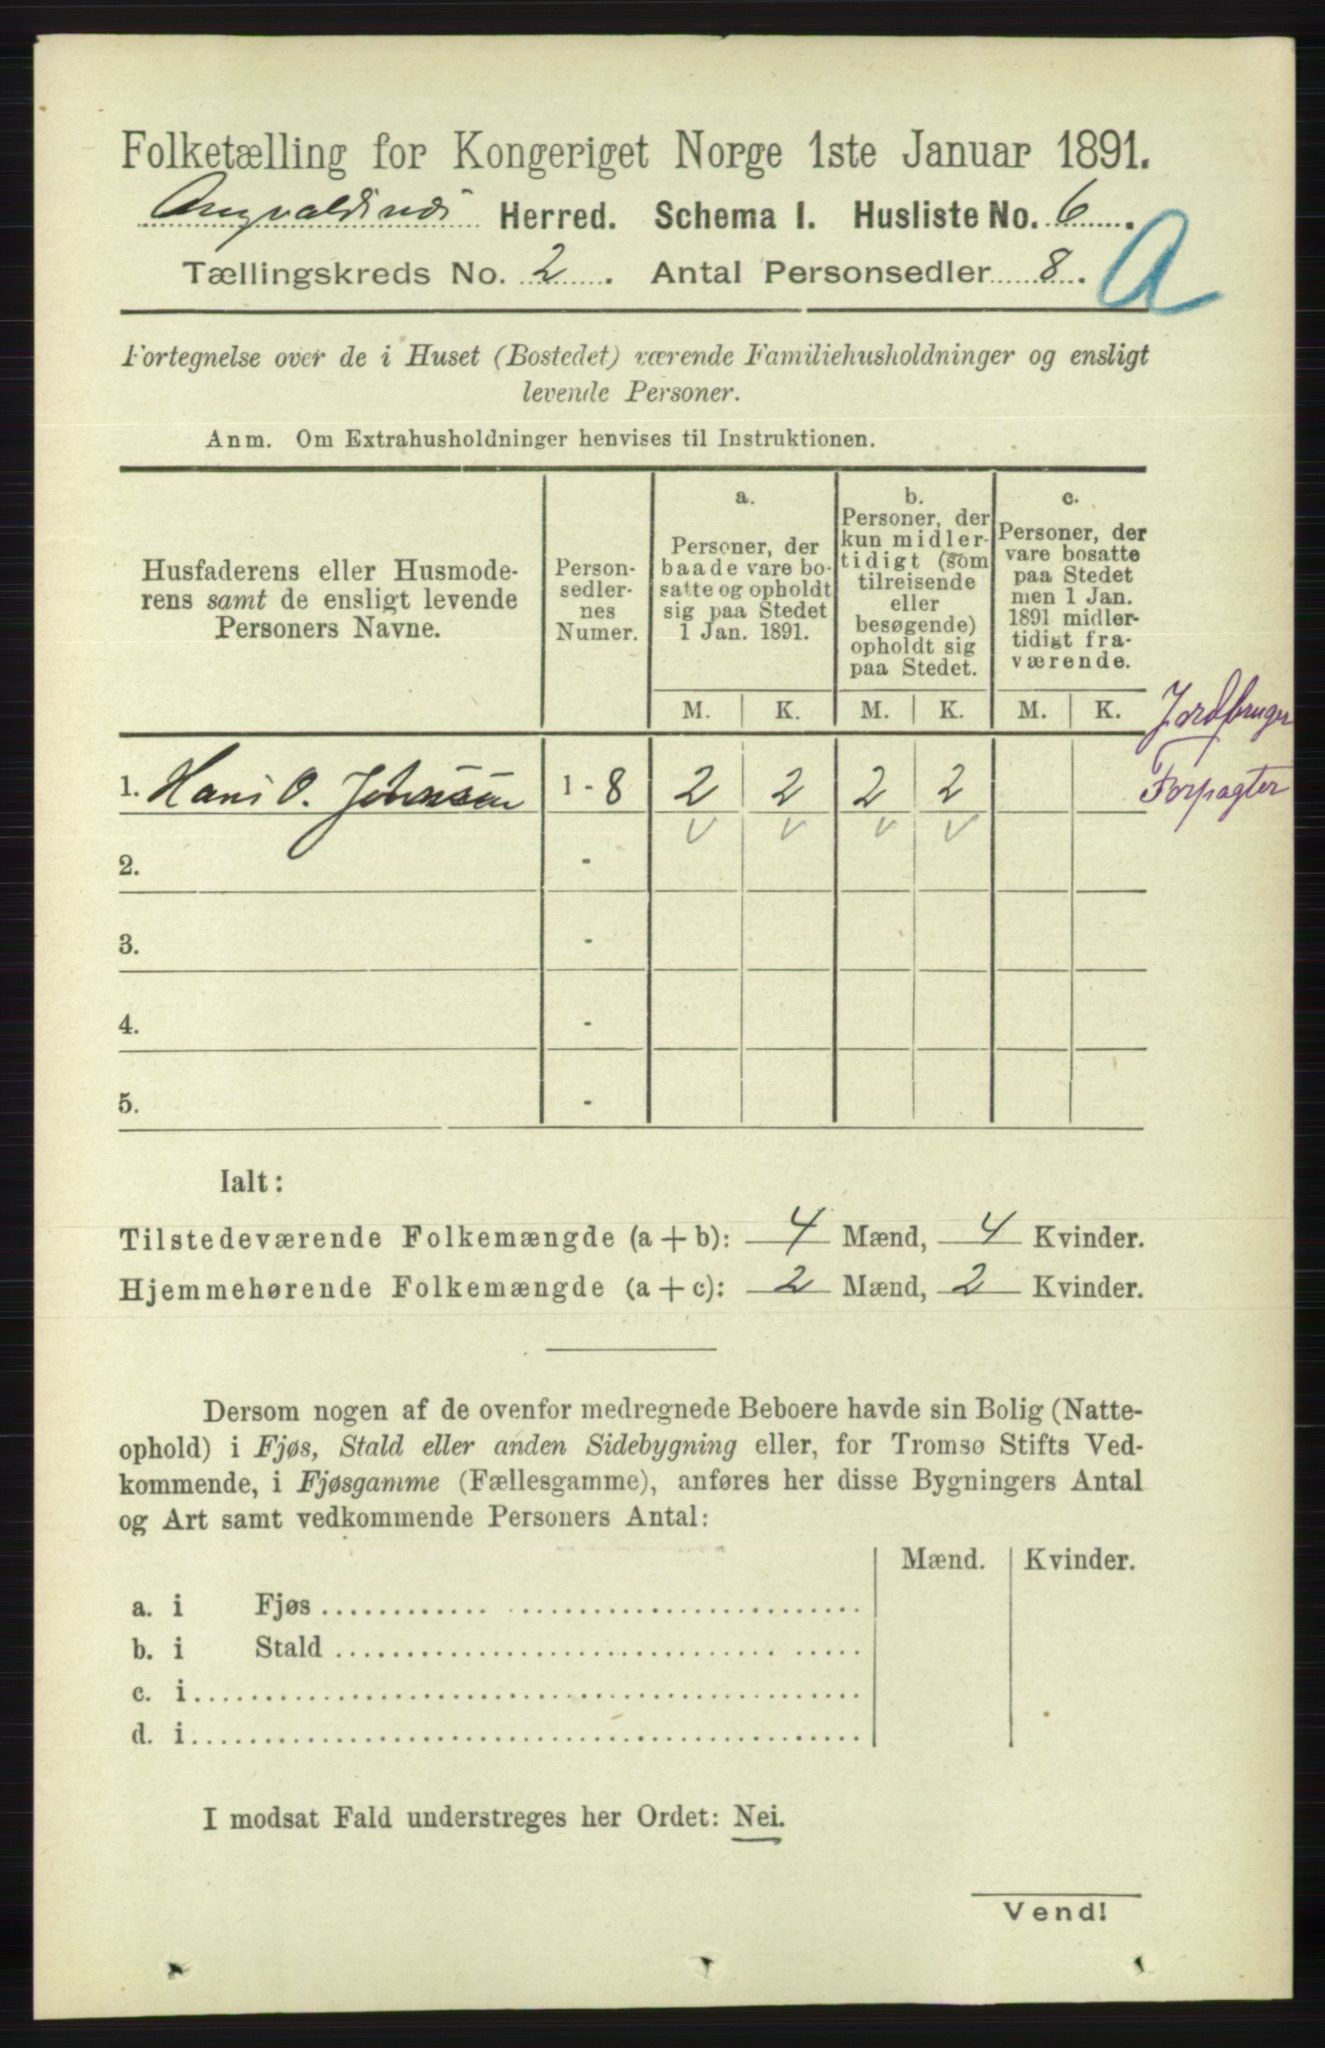 Folketælling for Kongeriget Norge 1ste Januar 1891.
Herred. Schema I. Husliste No. 6.
Tællingskreds No. 2. Antal Personsedler 8.
A
Fortegnelse over de i Huset (Bostedet) værende Familiehusholdninger og ensligt
levende Personer.
Anm. Om Extrahusholdninger henvises til Instruktionen.
Husfaderens eller Husmode-
rens samt de ensligt levende
Personers Navne.
Person-
sedler-
nes
Numer.
a.
Personer, der
baade vare bo-
satte og opholdt
sig paa Stedet
1 Jan. 1891.
b.
Personer, der
kun midler-
tidigt (som
tilreisende
eller
besøgende)
opholdt sig
paa Stedet.
c.
Personer, der
vare bosatte
paa Stedet
men 1 Jan.
1891 midler-
tidigt fra-
værende.
M. K. M. K. M. K.
Jordbruger
Forpagter
1. Hans O. Johnsen 1 - 8 2 2 2 2
v v v v
2. -
3. -
4. -
5. -
Ialt:
Tilstedeværende Folkemængde (a + b): 4 Mænd, 4 Kvinder.
Hjemmehørende Folkemængde (a + c): 2 Mænd, 2 Kvinder.
Dersom nogen af de ovenfor medregnede Beboere havde sin Bolig (Natte-
ophold) i Fjøs, Stald eller anden Sidebygning eller, for Tromsø Stifts Ved-
kommende, i Fjøsgamme (Fællesgamme), anføres her disse Bygningers Antal
og Art samt vedkommende Personers Antal:
Mænd. Kvinder.
a. i Fjøs
b. i Stald
c. i
d. i
I modsat Fald understreges her Ordet: Nei.
Vend!